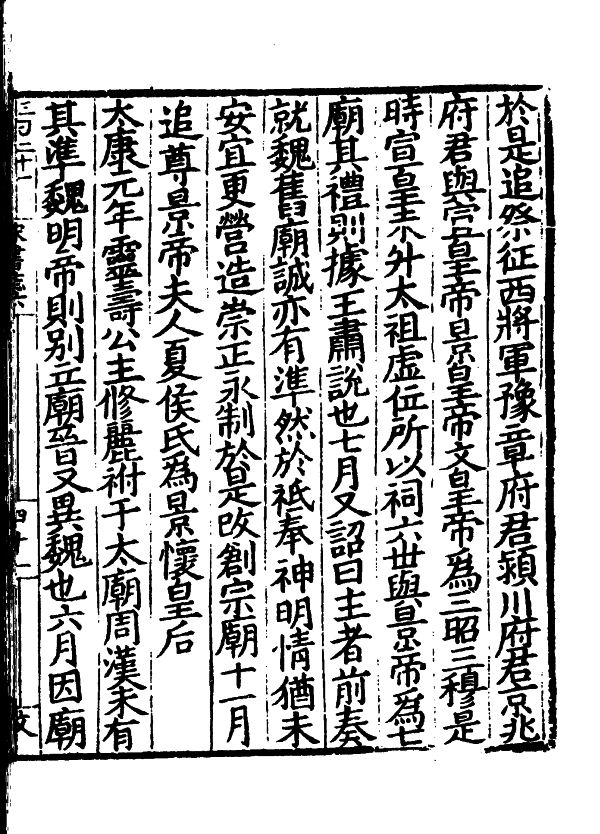 於是追祭征西將軍豫章府君潁川府君京兆
府君與宣皇帝景皇帝文皇帝爲三昭三穆是
時宣皇未升太祖虛位所以祠六世與景帝爲七
廟其禮則據王肅說也七月又詔曰主者前奏
就魏舊廟誠亦有準然於祗奉神明情猶未
安宜更營造崇正永制於是改創宗廟十一月
追尊景帝夫人夏侯氏爲景懷皇后
太康元年靈壽公主修麗祔于太廟周漢未有
其準魏明帝則別立廟晉又異魏也六月因廟